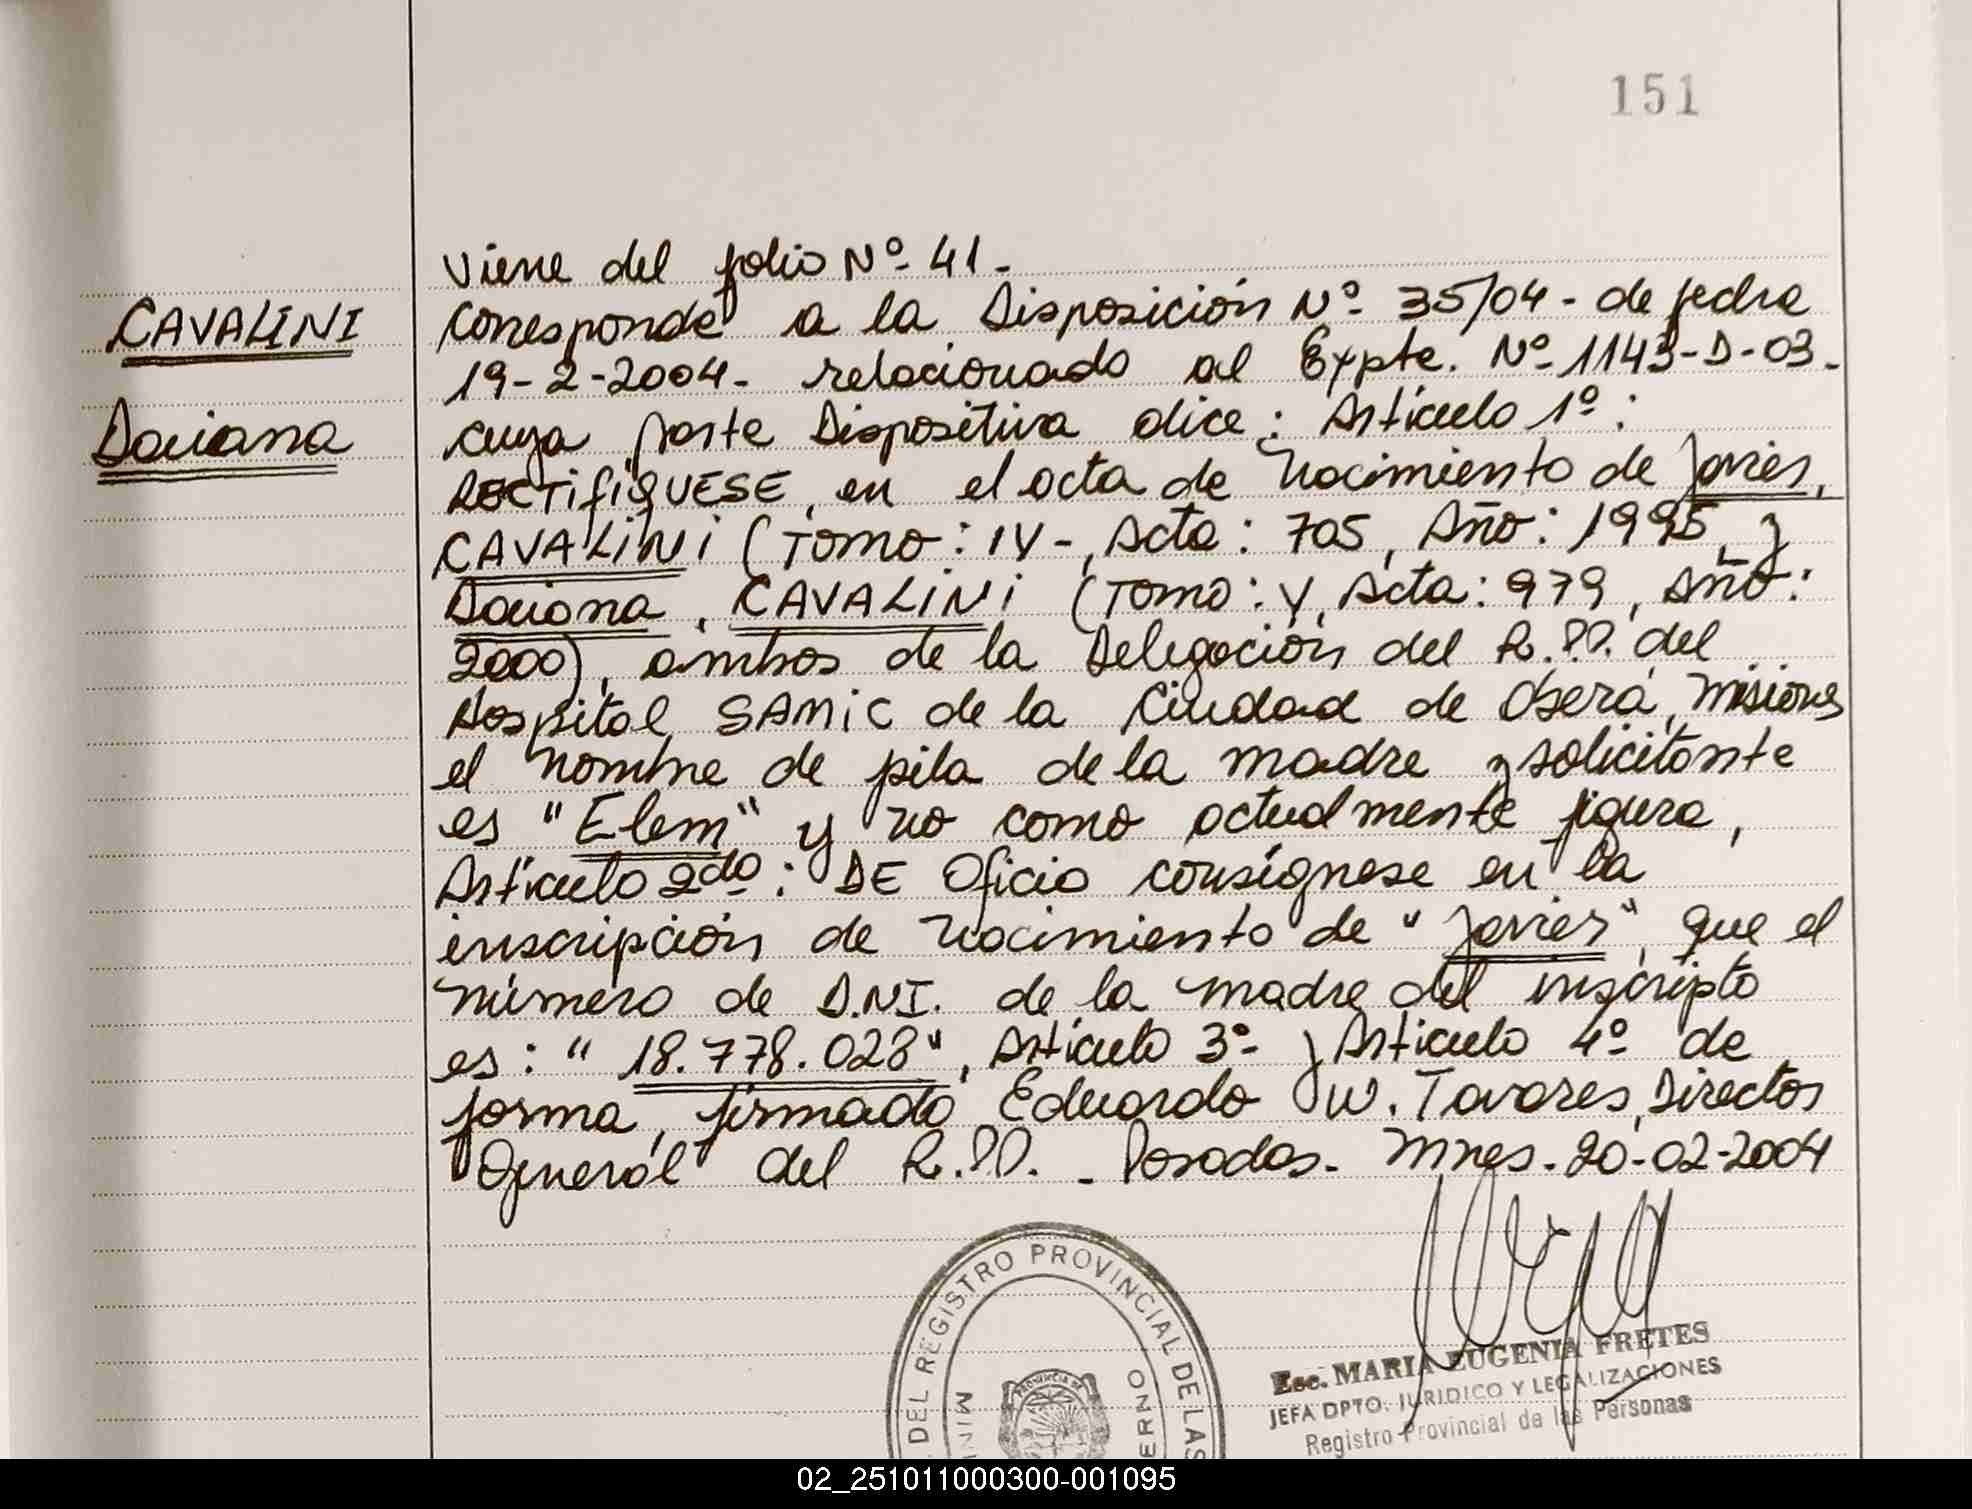 151
Viene del folio Nº 41.
CAVALINI
Corresponde a la Disposición Nº 35/04 - de fecha
19-2-2004 - relacionado al Expte. Nº 1143-D-03 -
Daiana
cuya parte Dispositiva dice: Artículo 1º:
RECTIFIQUESE, en el acta de Nacimiento de Javier,
CAVALINI (Tomo: IV-, Acta: 705, Año: 1995, y
Daiana, CAVALINI (Tomo: V, Acta: 979, Año:
2000), ambos de la Delegación del R.P.P. del
Hospital SAMIC de la Ciudad de Oberá, Misiones
el nombre de pila de la madre y solicitante
es "Elem" y no como actualmente figura,
Artículo 2do: DE Oficio consígnese en la
inscripción de Nacimiento de "Javier", que el
número de D.NI. de la madre del inscripto
es: "18.778.028", Artículo 3º y Artículo 4º de
forma, firmado Eduardo W. Tavares, Director
General del R.P.P. - Posadas - Mnes. 20-02-2004
DEL REGISTRO PROVINCIAL DE LAS
MINI
ERNO
PROVINCIA DE
Esc. MARIA EUGENIA FRETES
JEFA DPTO. JURIDICO Y LEGALIZACIONES
Registro Provincial de las Personas
02_251011000300-001095